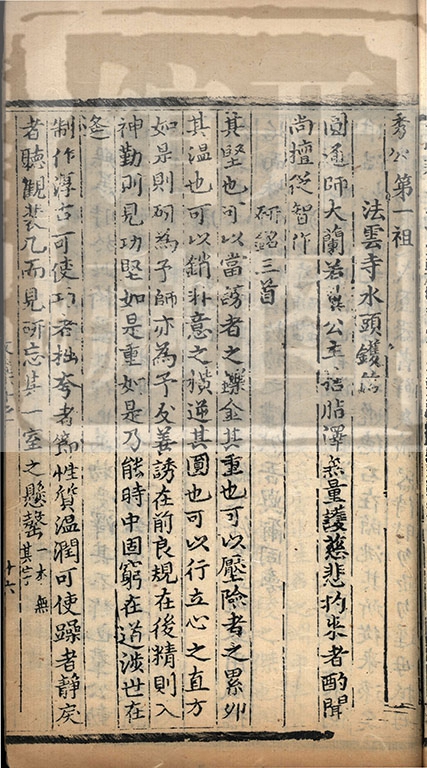 秀公第一祖
法雲寺水頭鑊銘
圓通師大蘭若冀公主捨脂澤無量護慈悲杓來者酌聞
尚擅從智作
研銘三首
其堅也可以當謗者之鑠金其重也可以壓險者之累卵
其温也可以銷朴意之橫逆其圓也可以行立心之直方
如是則研為予師亦為予友善誘在前良規在後精則入
神勤則見功堅如是重如是乃能時中固窮在道涉世在
逢
制作淳古可使巧者拙夸者節性質温潤可使躁者静戾
者聽觀裝几而見研忘其一室之懸罄一本無其字
十六